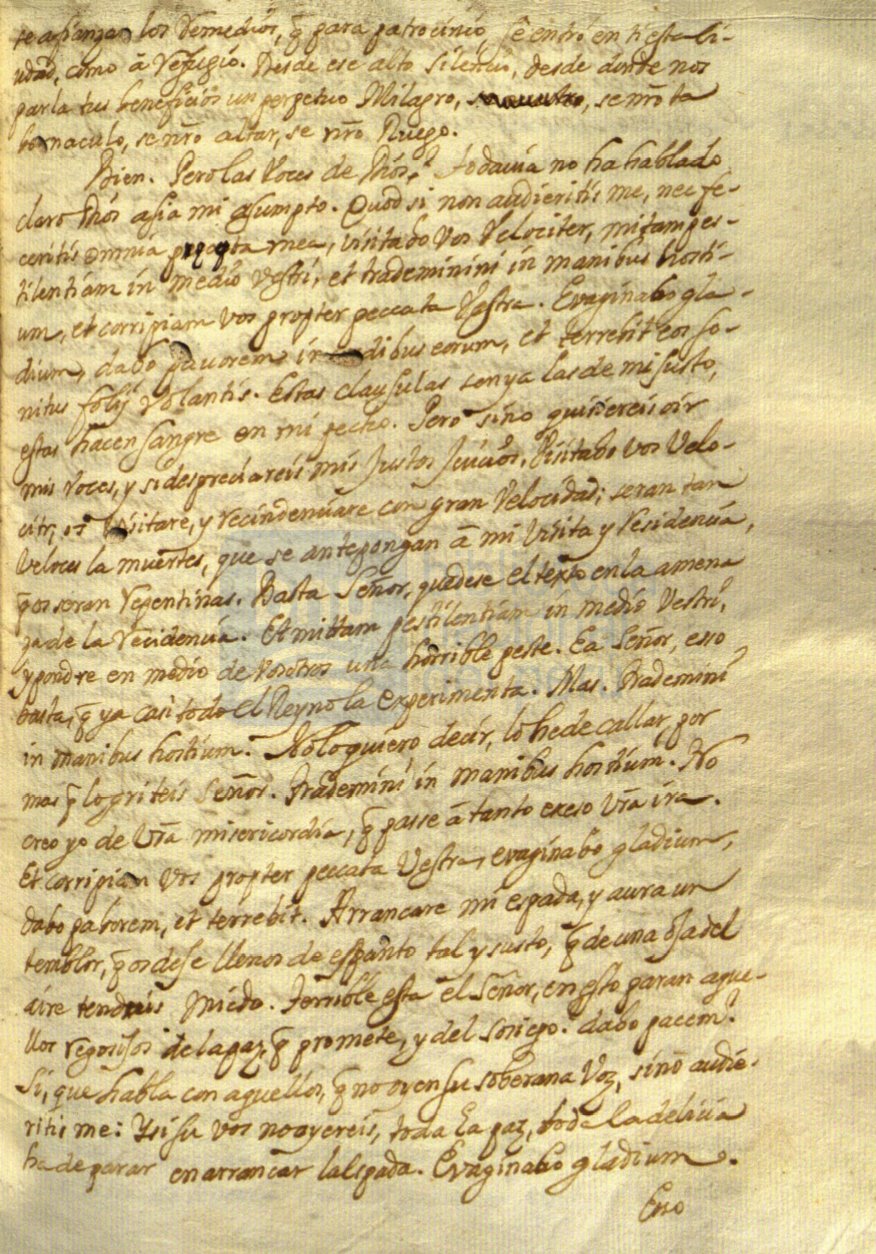 te afianzan los remedios, q̃ para patrocinio, se entró en ti esta Ci-
udad, como â refugio. Desde ese alto silencio, desde donde nos
parla tus beneficios un perpetuo Milagro, se nr̃o ta
bernaculo, se nr̃o altar, se nr̃o Ruego.
Bien. Pero las voces de Dios? todavia no ha hablado
claro Dios asia mi asumpto. Quod si non audieritis me, nec fe-
ceritis omnia mea, visitabo vos velociter, mitam pes-
tilentiam in medio vestri, et trademinini in manibus hosti-
um, et corripiam vos propter peccata vestra. Evaginabo gla-
dium, dabo pavorem in dibus eorum, et terrebit eos so-
nitus folij volantis. Estas clausulas son ya las de mi susto,
estas hacen sangre en mi pecho. Pero sino quisiereis oir
mis voces, y si despreciareis mis Justos Juicios, Visitabo vos velo-
citr, os visitare, y recindenciare con gran velocidad; seran tan
veloces la muertes, que se antepongan â mi visita y residencia,
q̃ os seran repentinas. Basta Señor, quedese el texto en la amena
za de la recidencia. Et mittam pestilentiam in medio vestri,
y pondre en medio de vosotros una horrible peste. Ea Señor, esso
basta, q̃ ya casi todo el Reyno la experimenta. Mas. Trademini
in manibus hostium. No lo quiero decir, lo he de callar, por
mas q̃ lo griteis Señor. Trademini in manibus hostium. No
creo yo de vr̃a misericordia, q̃ passe â tanto exeso vr̃a ira.
Et corripiam vos propter peccata vestra, evaginabo gladium,
dabo paborem, et terrebit. Arrancare mi espada, y aura un
temblor, q̃ os dese llenos de espanto tal y susto, q̃ de una oja del
aire tendreis miedo. Terrible esta el Señor, en esto paran aque-
llos regosijos de la paz, q̃ promete, y del sosiego? dabo pacem?
Si, que habla con aquellos, q̃ no oyen su soberana voz, sinõ audie-
ritis me: Y si su vos no oyereis, toda la paz, toda la delicia
ha de parar en arrancar la espada. Evaginabo gladium.